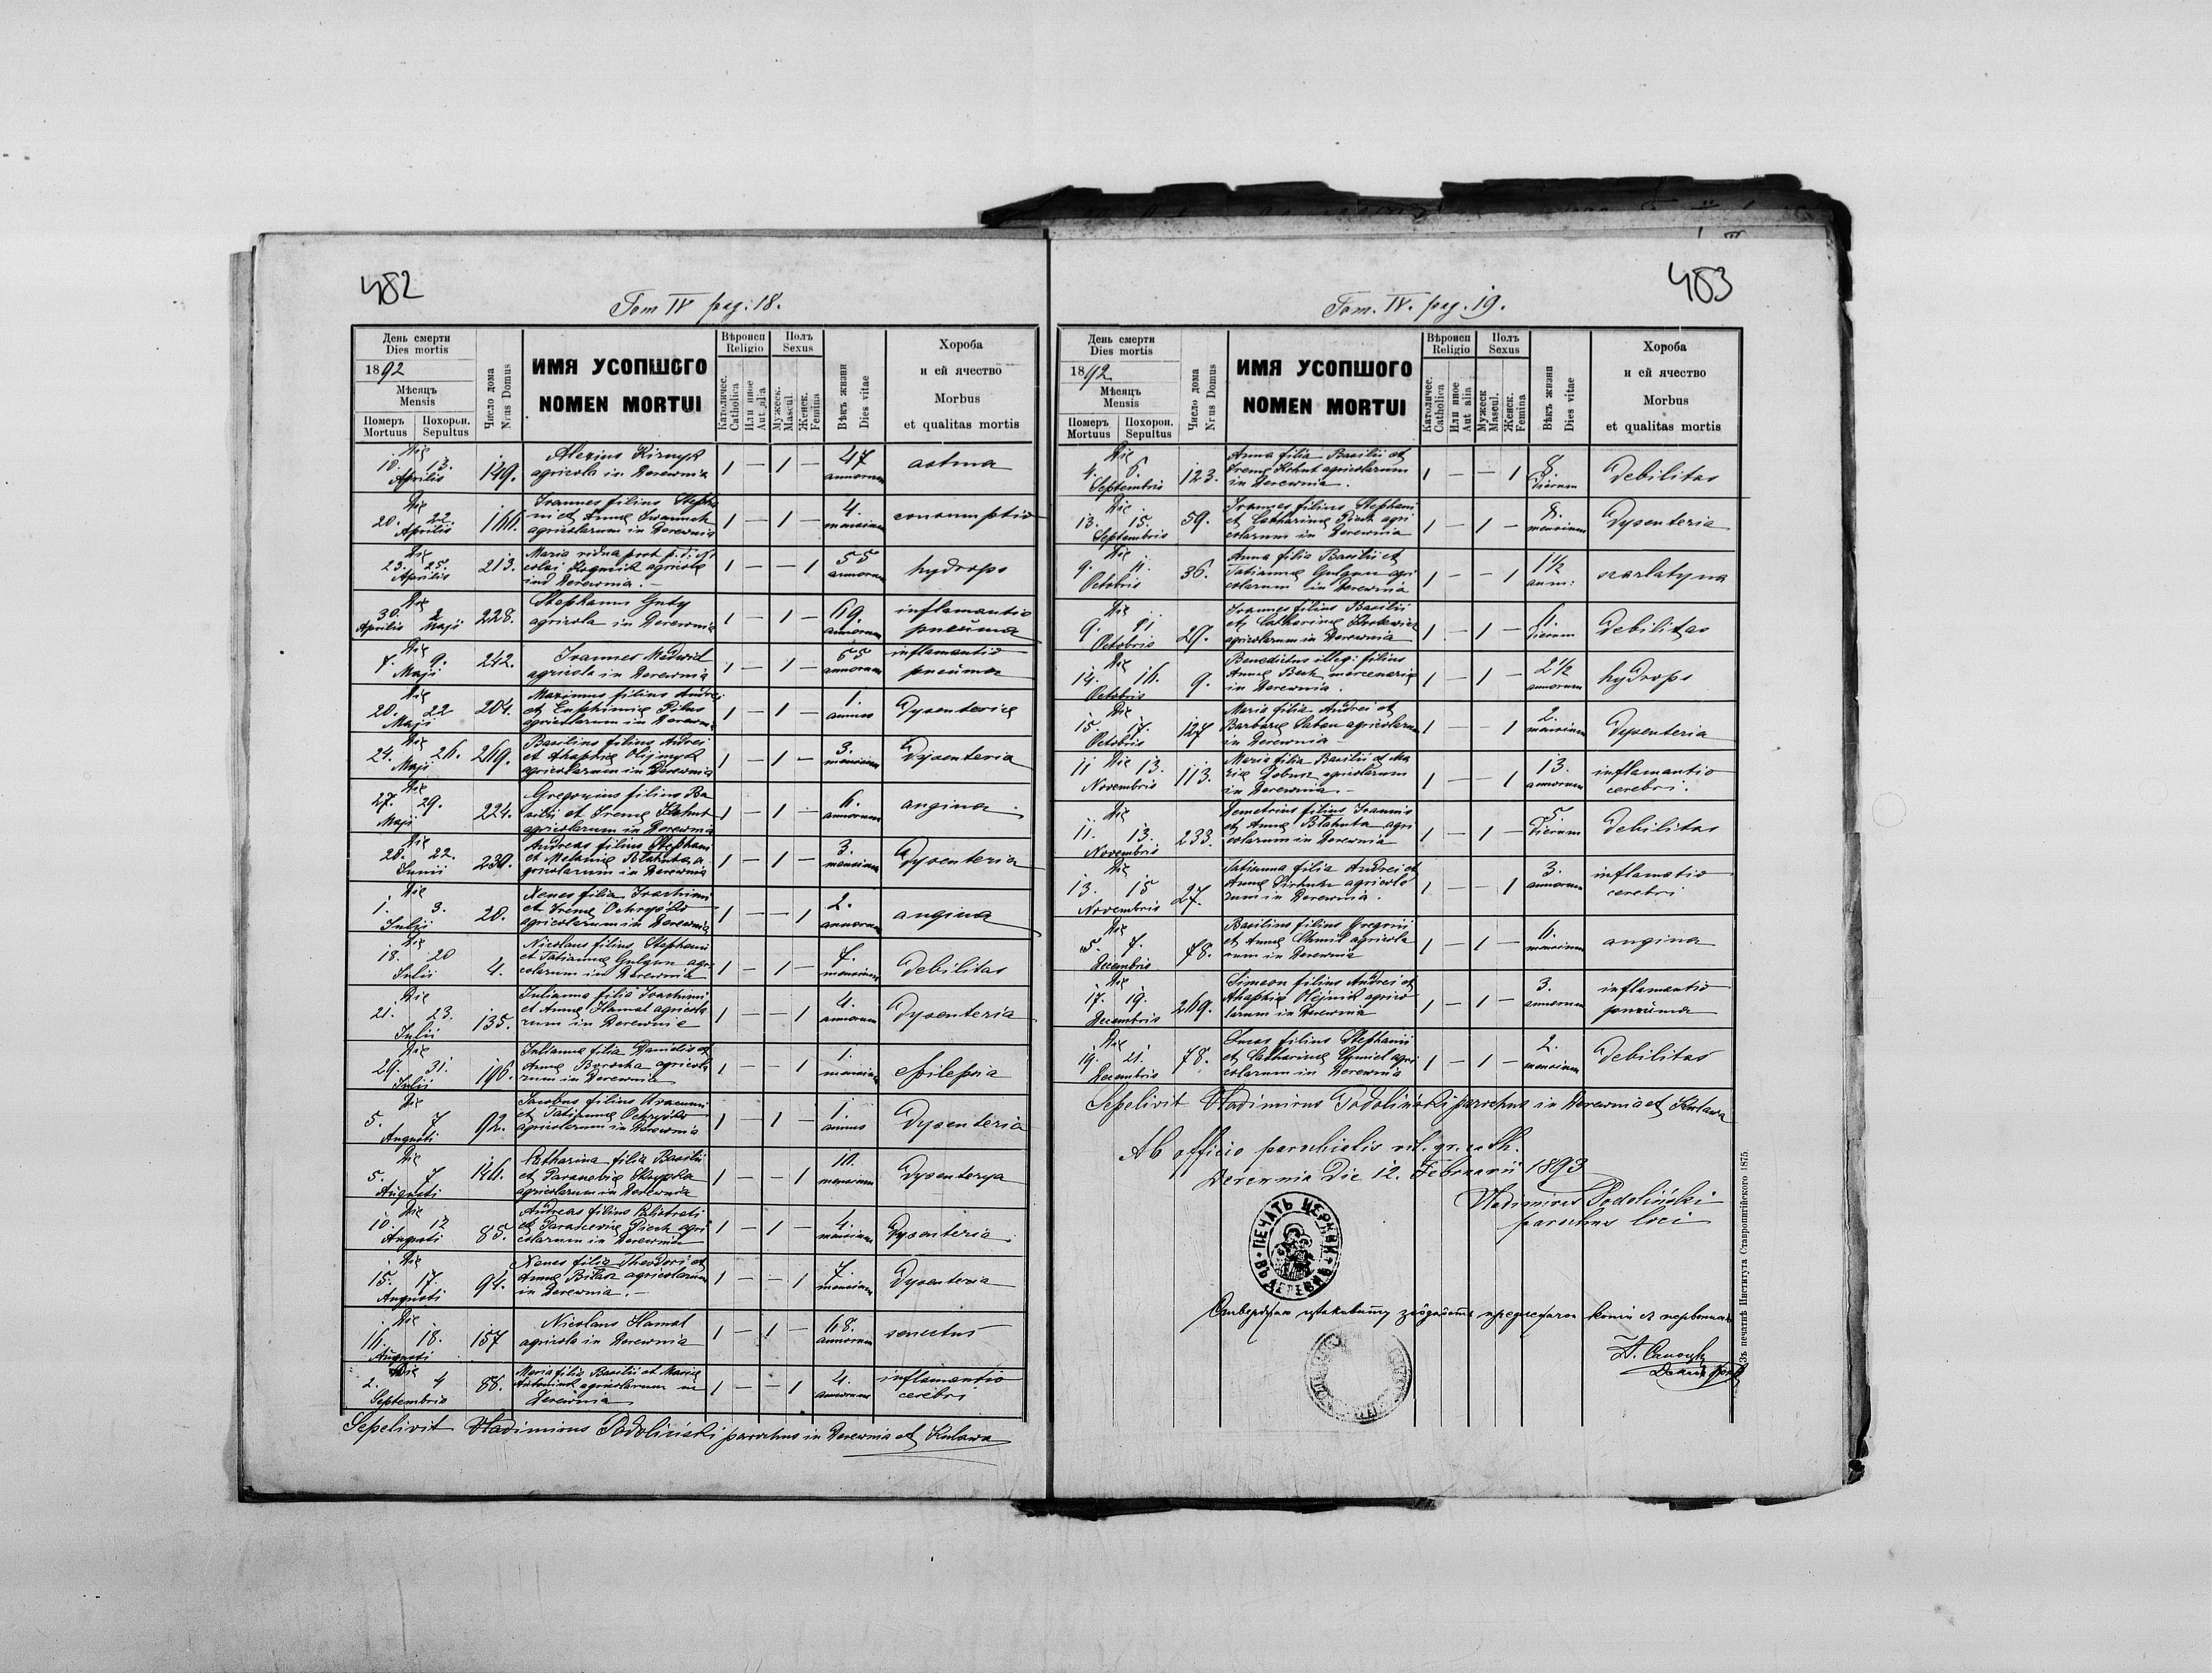 482
Tom IV pag. 18.
День смерти
Dies mortis
1892
Мѣсяцъ
Mensis
Померъ
Mortuus
Похорон.
Sepultus
Число дома
Nrus Domus
ИМЯ УСОПШОГО
NOMEN MORTUI
Вѣроисп
Religio
Католичес.
Catholica
Или иное
Aut alia
Полъ
Sexus
Мужеск.
Mascul.
Женск.
Femina
Вѣкъ жизни
Dies vitae
Хороба
и ей ячество
Morbus
et qualitas mortis
Die 10. 13. Aprilis 149. Alexius
agricola in Derewnia 1 – 1 – 47 annorum astma
Die 20. 22. Aprilis 166. Ioannes filius Stepha
ni et Annae
agricolarum in Derewnia 1 – 1 – 4. mensium consumptio
Die 23. 25. Aprilis 213. Maria vidua post p. d. Ni
colai agricola
in Derewnia. 1 – – 1 55 annorum hydrops
Die 30. Aprilis 2 Maji 228. Stephanus Guty
agricola in Derewnia 1 – 1 – 69. annorum inflamantio
pneuma
Die 7. 9. Maji 242. Ioannes Medwid
agricola in Derewnia 1 – 1 – 55 annorum inflamantio
pneuma
Die 20. 22 Maji 204. Maximus filius Andrei
et Euphimiae Pilus
agricolarum in Derewnia 1 – 1 – 1. annus Dysenteria
Die 24. 26. Maji 269. Basilius filius Andrei
et Ahaphiae Olijnyk
agricolarum in Derewnia 1 – 1 – 3. mensium Dysenteria
Die 27. 29. Maji 224. Gregorius filius Ba
silii et Irenae Kohut
agricolarum in Derewnia 1 – 1 – 6. annorum angina
Die 20. 22. Junii 230. Andreas filius Stephani
et Melaniae Błahuta a
gricolarum in Derewnia 1 – 1 – 3. mensium Dysenteria
Die 1. 3. Julii 20. Xenes filia Joachimi
et Irenae Ochrysko
agricolarum in Derewnia 1 – – 1 2. annorum angina
Die 18. 20 Julii 4. Nicolaus filius Stephani
et Tatiannae Gulgun agri
colarum in Derewnia 1 – 1 – 7. mensium Debilitas
Die 21. 23. Julii 135. Julianna filia Joachimi
et Annae Hamal agricola
rum in Derewnie 1 – – 1 4. annorum Dysenteria
Die 29. 31. Julii 196. Julianna filia Danielis et
Annae agricola
rum in Derewnia 1 – – 1 1. mensium epilepsia
Die 5. 7 Augusti 92. Jacobus filius
et Tatiannae Ochrysko
agricolarum in Derewnia 1 – 1 – 1. annus Dysenteria
Die 5. 7 Augusti 146. Catharina filia Basilii
et Parasceviae Skrypka
agricolarum in Derewnia 1 – – 1 10. mensium Dysenterya
Die 10. 12 Augusti 85. Andreas filius Calistrati
et Parasceviae Piech agri
colarum in Derewnia 1 – 1 – 4. mensium Dysenteria
Die 15. 17. Augusti 94. Xenes filia Theodori et
Annae Bilasz agricolarum
in Derewnia. 1 – – 1 7. mensium Dysenteria
Die 16. 18. Augusti 157 Nicolaus Hamal
agricola in Derewnia 1 – 1 – 68. annorum senectus
Die 2. 4 Septembris 88. Maria filia Basilii et Mariae
agricolarum in
Derewnia 1 – – 1 4. annorum inflamantio
cerebri
Sepelivit Wladimirus Podoliński parochus in Derewnia et Kulawa
483
Tom. IV. pag. 19.
День смерти
Dies mortis
1892
Мѣсяцъ
Mensis
Померъ
Mortuus
Похорон.
Sepultus
Число дома
Nrus Domus
ИМЯ УСОПШОГО
NOMEN MORTUI
Вѣроисп
Religio
Католичес.
Catholica
Или иное
Aut alia
Полъ
Sexus
Мужеск
Mascul.
Женск.
Femina
Вѣкъ жизни
Dies vitae
Хороба
и ей ячество
Morbus
et qualitas mortis
Die 4. 6. Septembris 123. Anna filia Basilii et
Irenae Kohut agricolarum
in Derewnia. 1 – – 1 8. Dierum Debilitas
Die 13. 15. Septembris 59. Ioannes filius Stephani
et Catharinae Piech agri
colarum in Derewnia 1 – 1 – 8. mensium Dysenteria
Die 9. 11. Octobris 36. Anna filia Basilii et
Tatiannae Gulgun agri
colarum in Derewnia 1 – – 1 1½ anni: scarlatyna
Die 9. 11 Octobris 29. Ioannes filius Basilii
et Catharinae
agricolarum in Derewnia 1 – 1 – 6. Dierum Debilitas
Die 14. 16. Octobris 9. Benedictus illeg: filius
Annae mercenariae
in Derewnia. 1 – 1 – 2½ annorum hydrops
Die 15. 17. Octobris 127 Maria filia Andrei et
Barbarae agricolarum
in Derewnia 1 – – 1 2. mensium Dysenteria
Die 11 13. Novembris 113. Maria filia Basilii et Ma
riae agricolarum
in Derewnia. 1 – – 1 13. annorum inflamantio
cerebri.
Die 11. 13. Novembris 233. Demetrius filius Ioannis
et Annae Błahuta agri
colarum in Derewnia 1 – 1 – 5 Dierum Debilitas
Die 13. 15 Novembris 27. Tatianna filia Andrei et
Annae agricola
rum in Derewnia. 1 – – 1 3. annorum inflamatio
cerebri
Die 5. 7. Decembris 78. Basilius filius Gregorii
et Annae Chmil agricola
rum in Derewnia 1 – 1 – 6. mensium angina
Die 17. 19. Decembris 269. Simeon filius Andrei et
Ahaphiae Olijnik agrico
larum in Derewnia 1 – 1 – 3. annorum inflamantio
pneuma
Die 19. 21. Decembris 78. Lucas filius Stephani
et Catharinae Chmiel agri
colarum in Derewnia 1 – 1 – 2. mensium Debilitas
Sepelivit Wladimirus Podoliński parochus in Derewnia et Kulawa
Ab officio parochialis rit. gr. cath.
Derewnia Die 12. Februarii 1893
Wladimirus Podoliński
parochus loci
ПЕЧАТЬ ЦЕРКВИ ВЪ ДЕРЕВНИ
Зъ печатнѣ Института Ставропигійского 1875.